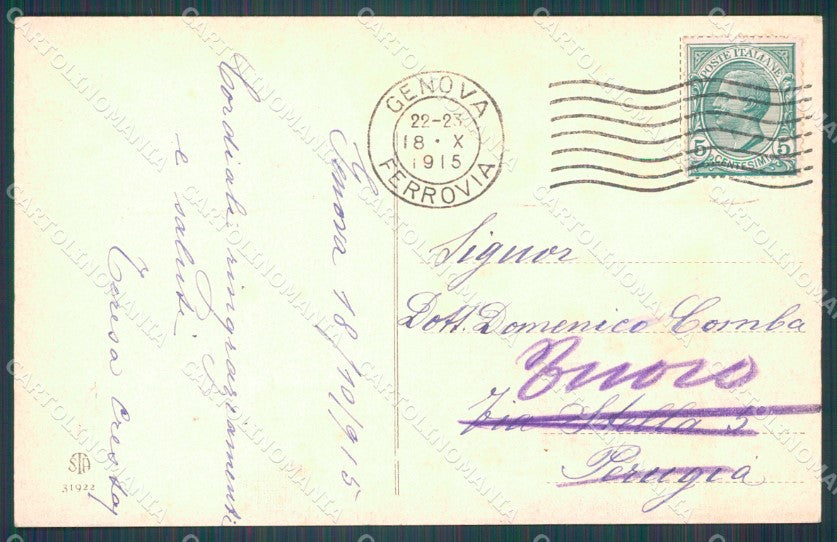 Genova 18/10/915
Cordiali ringraziamenti
e saluti
Teresa
GENOVA
22-23
18 • X
1915
FERROVIA
POSTE ITALIANE
5 CENTESIMI 5
Signor
Dott. Domenico Comba
Nuoro
Via Stella 5
Perugia
31922
CARTOLINOMANIA